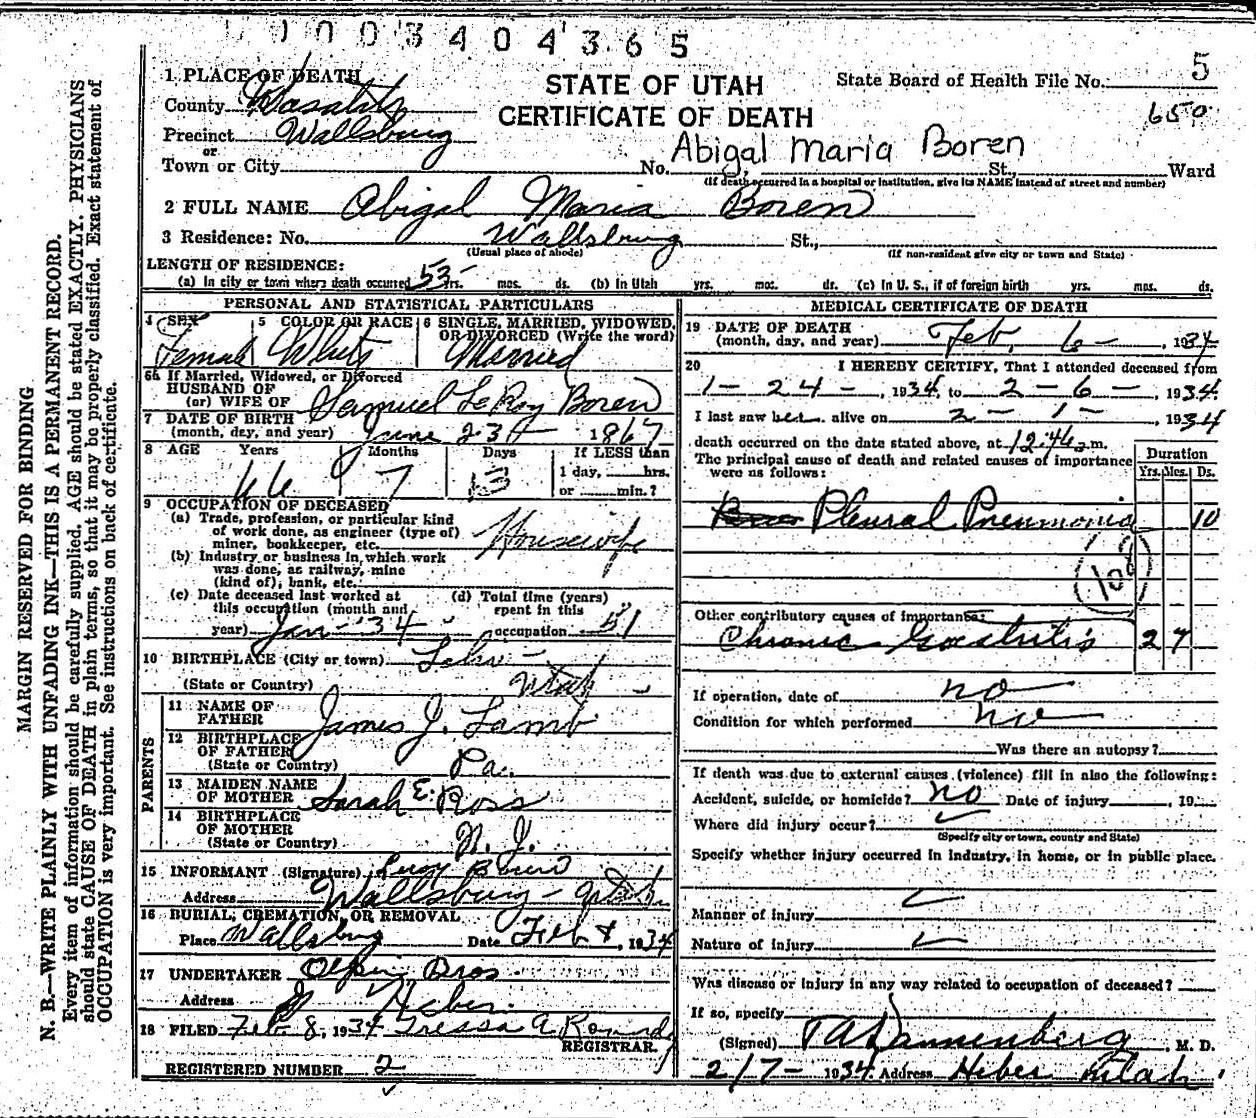 1003404365
5
STATE OF UTAH
CERTIFICATE OF DEATH
State Board of Health File No.
650
1 PLACE OF DEATH
County Wasatch
Precinct Wallsburg
or
Town or City No. St., Ward
Abigal Maria Boren
(If death occurred in a hospital or institution, give its NAME instead of street and number)
2 FULL NAME Abigal Maria Boren
3 Residence: No. Wallsburg St.,
(Usual place of abode) (If non-resident give city or town and State)
LENGTH OF RESIDENCE:
(a) In city or town where death occurred 53 yrs. mos. ds. (b) In Utah yrs. mos. ds. (c) In U. S., if of foreign birth yrs. mos. ds.
PERSONAL AND STATISTICAL PARTICULARS
4 SEX 5 COLOR OR RACE 6 SINGLE, MARRIED, WIDOWED, OR DIVORCED (Write the word)
Female White Married
6a If Married, Widowed, or Divorced
HUSBAND OF
(or) WIFE OF Samuel LeRoy Boren
7 DATE OF BIRTH
(month, day, and year) June 23 1867
8 AGE Years Months Days If LESS than
1 day, hrs.
or min.?
66 7 13
9 OCCUPATION OF DECEASED
(a) Trade, profession, or particular kind
of work done, as engineer (type of)
miner, bookkeeper, etc. Housewife
(b) Industry or business in which work
was done, as railway, mine
(kind of), bank, etc.
(c) Date deceased last worked at
this occupation (month and
year) Jan - '34
(d) Total time (years)
spent in this
occupation 51
10 BIRTHPLACE (City or town) Lehi
(State or Country) Utah
PARENTS
11 NAME OF
FATHER James J. Lamb
12 BIRTHPLACE
OF FATHER
(State or Country) Pa.
13 MAIDEN NAME
OF MOTHER Sarah E. Ross
14 BIRTHPLACE
OF MOTHER
(State or Country) N. J.
15 INFORMANT (Signature)
Address Wallsburg - Utah
16 BURIAL, CREMATION, OR REMOVAL
Place Wallsburg Date Feb 8, 1934
17 UNDERTAKER Olpin Bros
Address Heber
18 FILED Feb 8, 1934 Tressa A
REGISTRAR.
REGISTERED NUMBER 2
MEDICAL CERTIFICATE OF DEATH
19 DATE OF DEATH
(month, day, and year) Feb. 6 - , 1934
20 I HEREBY CERTIFY, That I attended deceased from
1 - 24 - , 1934, to 2 - 6 - , 1934
I last saw her alive on 2 - 1 - , 1934
death occurred on the date stated above, at 12:46 m.
The principal cause of death and related causes of importance
were as follows:
Duration
Yrs. Mos. Ds.
Pleural Pneumonia 10
108
Other contributory causes of importance:
Chronic Gastritis 2 7
If operation, date of no
Condition for which performed no
Was there an autopsy?
If death was due to external causes (violence) fill in also the following:
Accident, suicide, or homicide? no Date of injury , 19
Where did injury occur?
(Specify city or town, county and State)
Specify whether injury occurred in industry, in home, or in public place.
Manner of injury
Nature of injury
Was disease or injury in any way related to occupation of deceased?
If so, specify
(Signed) T A Dannenberg , M. D.
2/7 - 1934 Address Heber Utah
MARGIN RESERVED FOR BINDING
N. B.—WRITE PLAINLY WITH UNFADING INK—THIS IS A PERMANENT RECORD.
Every item of information should be carefully supplied. AGE should be stated EXACTLY. PHYSICIANS
should state CAUSE OF DEATH in plain terms, so that it may be properly classified. Exact statement of
OCCUPATION is very important. See instructions on back of certificate.